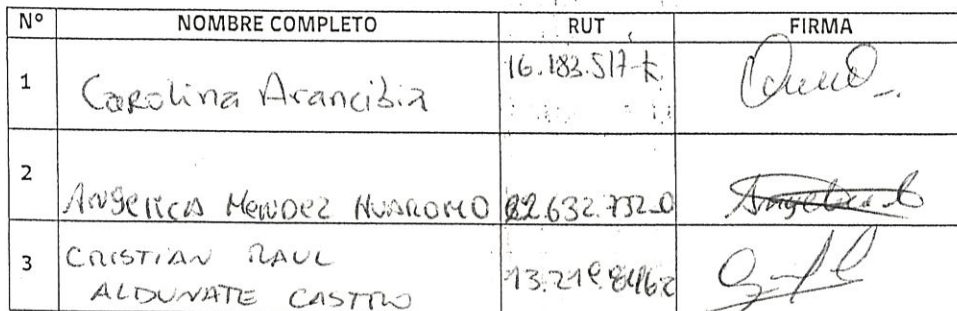 Nº NOMBRE COMPLETO RUT FIRMA
1 Carolina Arancibia 16.183.517-k
2 Angelica Mendez Huaromo 22.632.732-0
3 CRISTIAN RAUL
ALDUNATE CASTRO